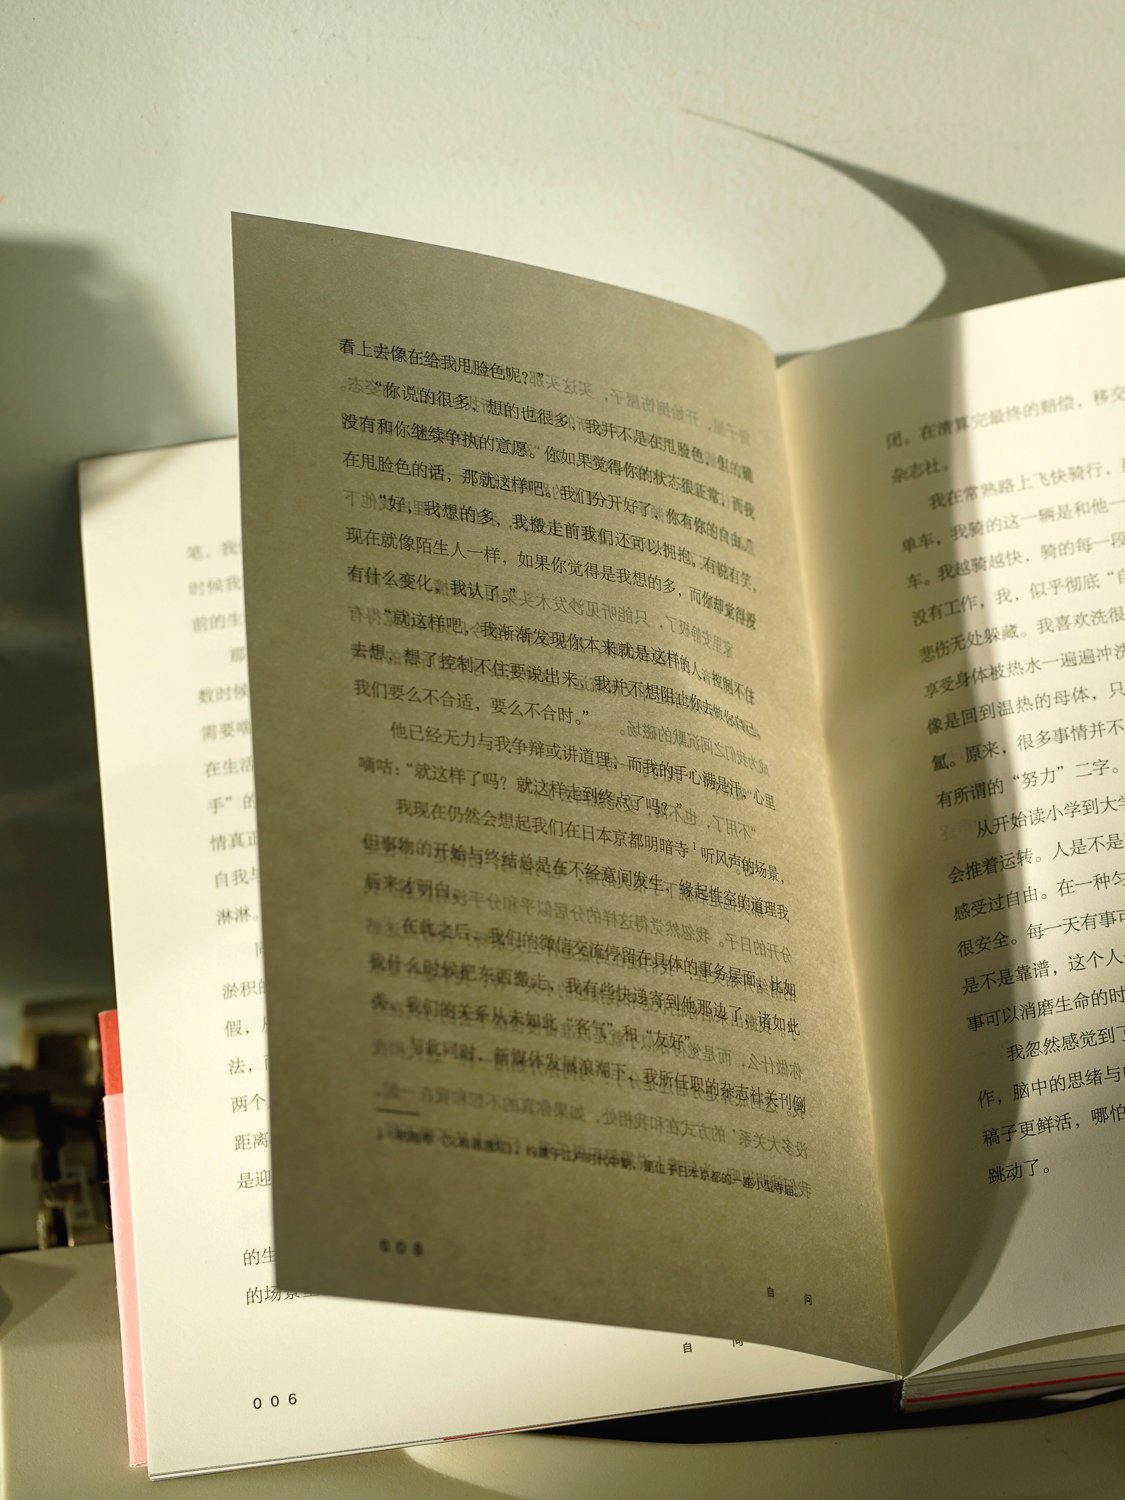 看上去像在给我甩脸色呢？”
“你说的很多，想的也很多，我并不是在甩脸色，但的确
没有和你继续争执的意愿。你如果觉得你的状态很正常，而我
在甩脸色的话，那就这样吧。我们分开好了，你有你的自由。”
“好，我想的多，我搬走前我们还可以拥抱，有说有笑，
现在就像陌生人一样，如果你觉得是我想的多，而你却觉得没
有什么变化，我认了。”
“就这样吧，我渐渐发现你本来就是这样的人，控制不住
去想，想了控制不住要说出来，我并不想阻止你去做
我们要么不合适，要么不合时。”
他已经无力与我争辩或讲道理，而我的手心满是汗，心里
嘀咕：“就这样了吗？就这样走到终点了吗？”
我现在仍然会想起我们在日本京都明暗寺¹听风声的场景，
但事物的开始与终结总是在不经意间发生，缘起性空的道理我
后来才明白。
在此之后，我们的微信交流停留在具体的事务层面，比如
我什么时候把东西搬走，我有些快递寄到他那边了，诸如此
类。我们的关系从未如此“客气”和“友好”。
与此同时，新媒体发展浪潮下，我所任职的杂志社关刊倒
约建于江户时代中期，是位于日本京都的一座小型寺庙。
自 问
笔，我
时候我
前的生
那
数时候
需要
在生活
手”的
情真正
自我与
淋淋。
同
淤积的
假，
法，
两个
距离
是迎
的生
的场景
自 问
006
团。在清算完最终的赔偿，移交
杂志社。
我在常熟路上飞快骑行，
单车，我骑的这一辆是和他一
车。我越骑越快，骑的每一段
没有工作，我，似乎彻底“自
悲伤无处躲藏。我喜欢洗很
享受身体被热水一遍遍冲洗
像是回到温热的母体，只
氲。原来，很多事情并不
有所谓的“努力”二字。
从开始读小学到大学
会推着运转。人是不是
感受过自由。在一种匀
很安全。每一天有事可
是不是靠谱，这个人
事可以消磨生命的时
我忽然感觉到了
作，脑中的思绪与
稿子更鲜活，哪怕
跳动了。